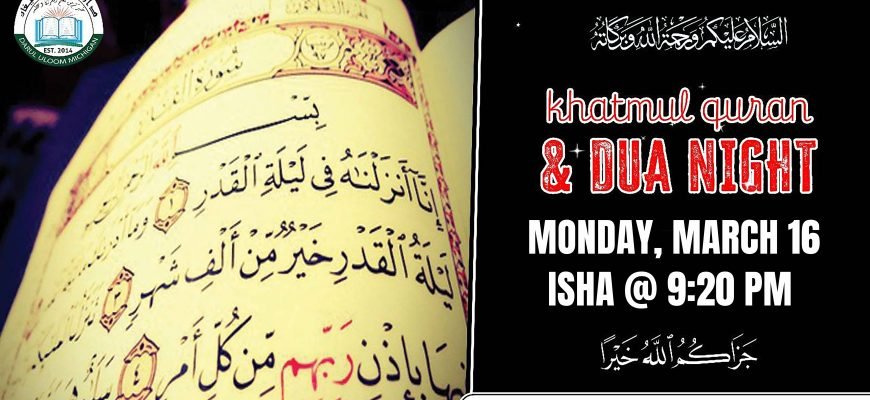 EST. 2014
DARUL ULOOM MICHIGAN
سُورَةُ القَدْر
بِسْـ
إِنَّآ أَنزَلْنَٰهُ فِى لَيْلَةِ ٱلْقَدْرِ ١ وَمَآ
لَيْلَةُ ٱلْقَدْرِ خَيْرٌ مِّنْ أَلْفِ شَهْرٍ ٣
بِإِذْنِ رَبِّهِم مِّن كُلِّ أَمْرٍ ٤
السَّلَامُ عَلَيْكُمْ وَرَحْمَةُ اللهِ وَبَرَكَاتُهُ
khatmul quran
& DUA NIGHT
MONDAY, MARCH 16
ISHA @ 9:20 PM
جَزَاكُمُ ٱللَّهُ خَيْرًا